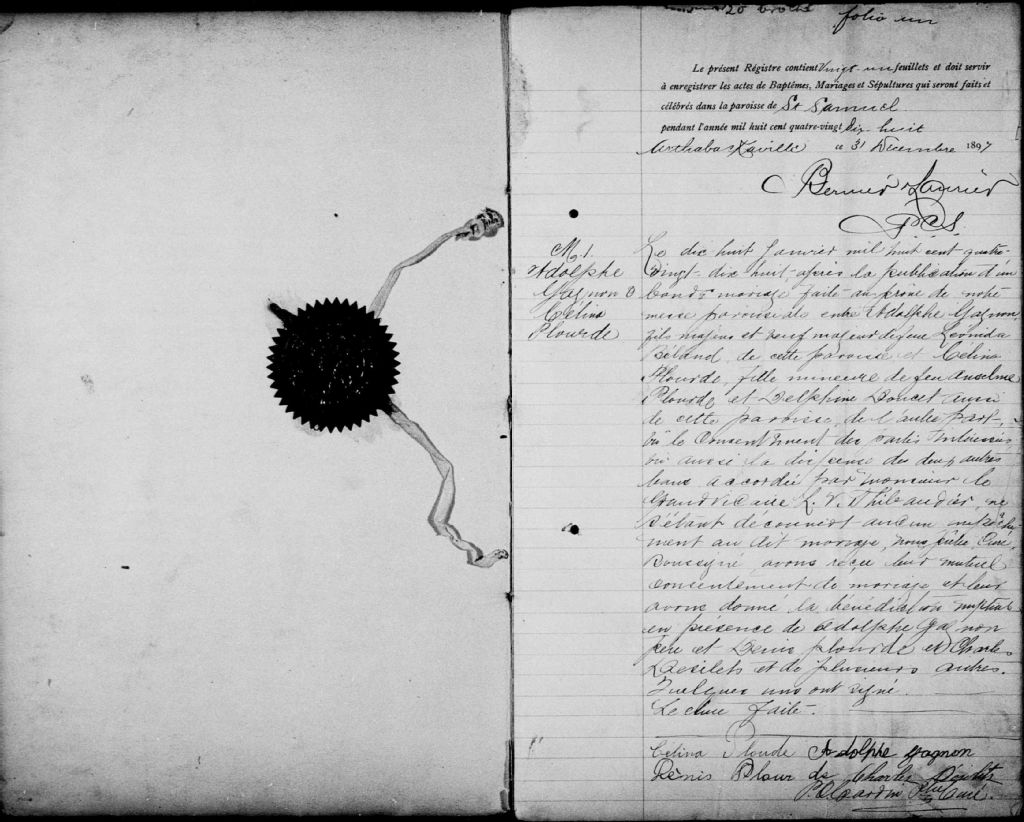 folio un
Le présent Régistre contient Vingt-un feuillets et doit servir
à enregistrer les actes de Baptêmes, Mariages et Sépultures qui seront faits et
célébrés dans la paroisse de St Samuel
pendant l'année mil huit cent quatre-vingt dix huit
Arthabaskaville ce 31 Décembre 1897
P.C.S.
M. 1.
Adolphe
Gagnon &
Célina
Plourde
Le dix huit Janvier mil huit cent quatre-
vingt-dix huit, après la publication d'un
band mariage faite au prône de notre
messe paroissiale entre Adolphe Gagnon,
fils majeur et veuf majeur de feue Leonida
Béland, de cette paroisse et Célina
Plourde, fille mineure de feu Anselme
Plourde et Delphine Doucet aussi
de cette paroisse, de l'autre part,
vu le consentement des parties
vu aussi la dispense des deux autres
bans accordée par monsieur le
Grand vicaire L. V. Thibaudier, ne
s'étant découvert aucun empêche-
ment au dit mariage, nous prêtre Curé,
Soussigné avons reçu leur mutuel
consentement de mariage et leur
avons donné la bénédiction nuptiale
en présence de Adolphe Gagnon
père et Denis Plourde et Charles
Desilets et de plusieurs autres.
Quelques uns ont signé.
Lecture faite.
Célina Plourde Adolphe Gagnon
Dénis Plourde Charles Désilets
Ptre Curé.